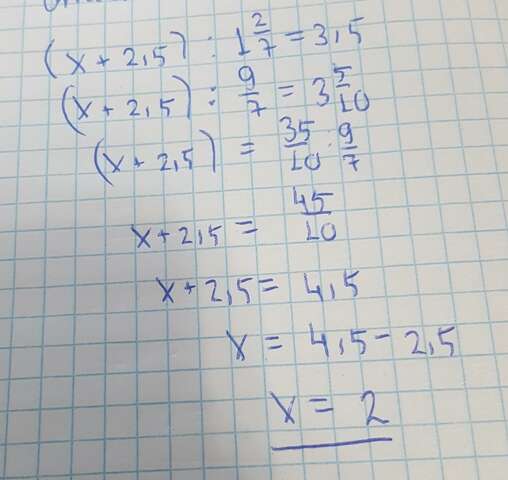 (x + 2,5) : 1 2/7 = 3,5
(x + 2,5) : 9/7 = 3 5/10
(x + 2,5) = 35/10 · 9/7
x + 2,5 = 45/10
x + 2,5 = 4,5
x = 4,5 - 2,5
x = 2